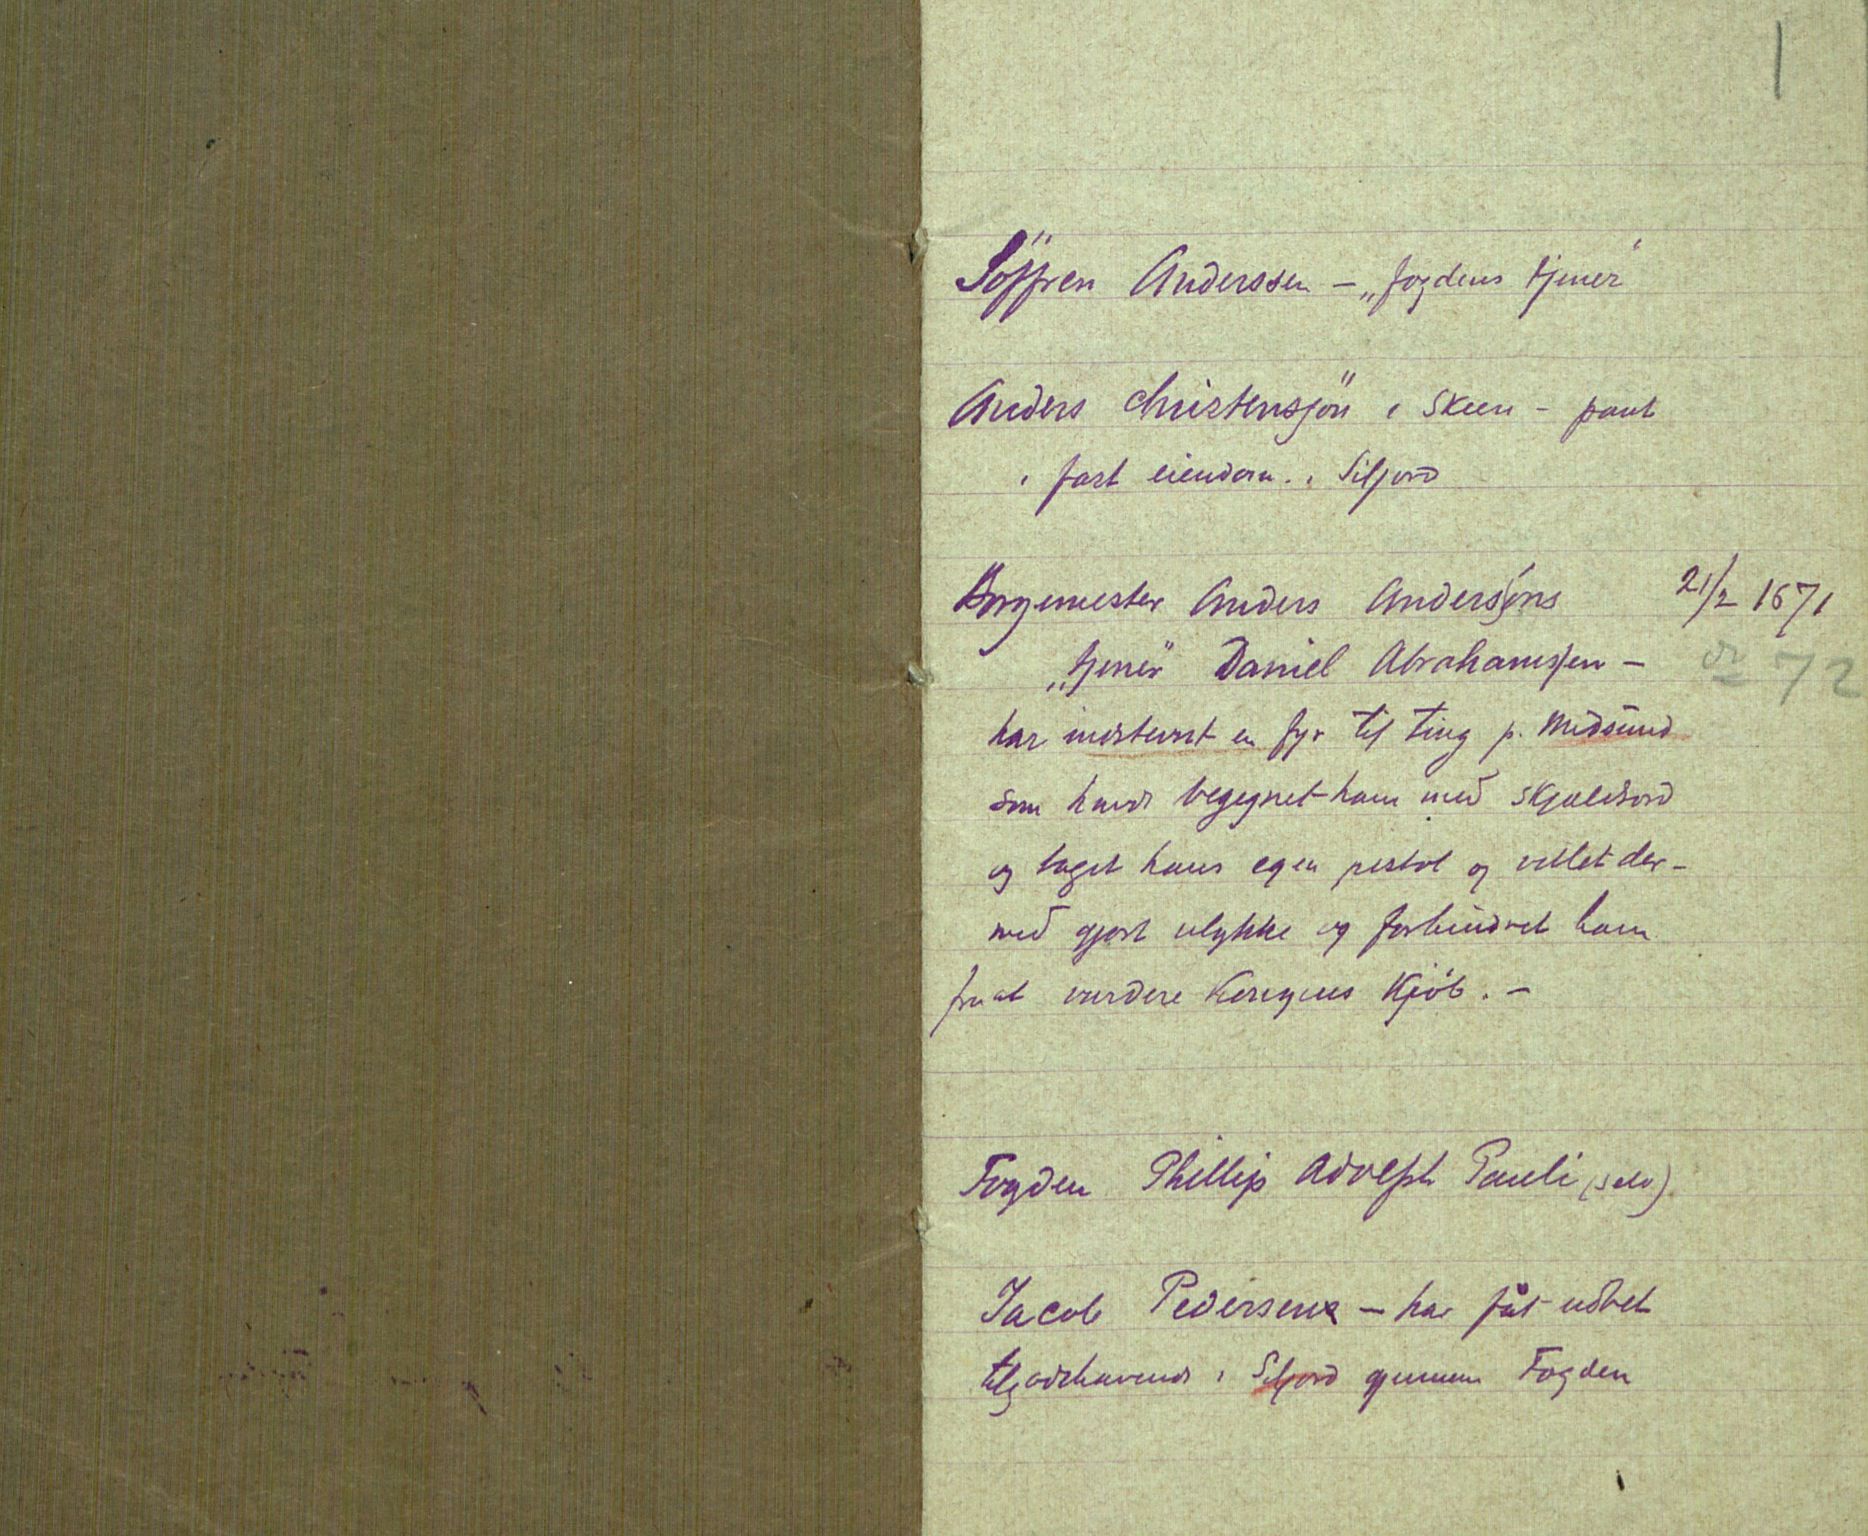 1
Söffren Anderssen – „fogdens tjener"
Anders Christensjön i Skeen – pant
i fast eiendom i Siljord
Borgemester Anders Andersöns 21/2 1671
„tjener" Daniel Abrahamsjen – 72
har indstevnt en fyr til ting p. Midsund
som havde begegnet ham med skjældsord
og taget hans egen pistol og villet der-
med gjort ulykke og forhindret ham
fra at vurdere Kongens Kjöb. –
Fogden Phillip Adolph Pauli (selv)
Jacob Pedersen – har fåt udbet
tilgodehavende i Siljord gjennem Fogden